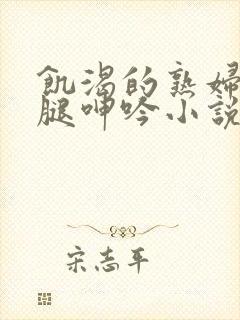 飢渴的熟婦
腿呻吟小說
宋志平